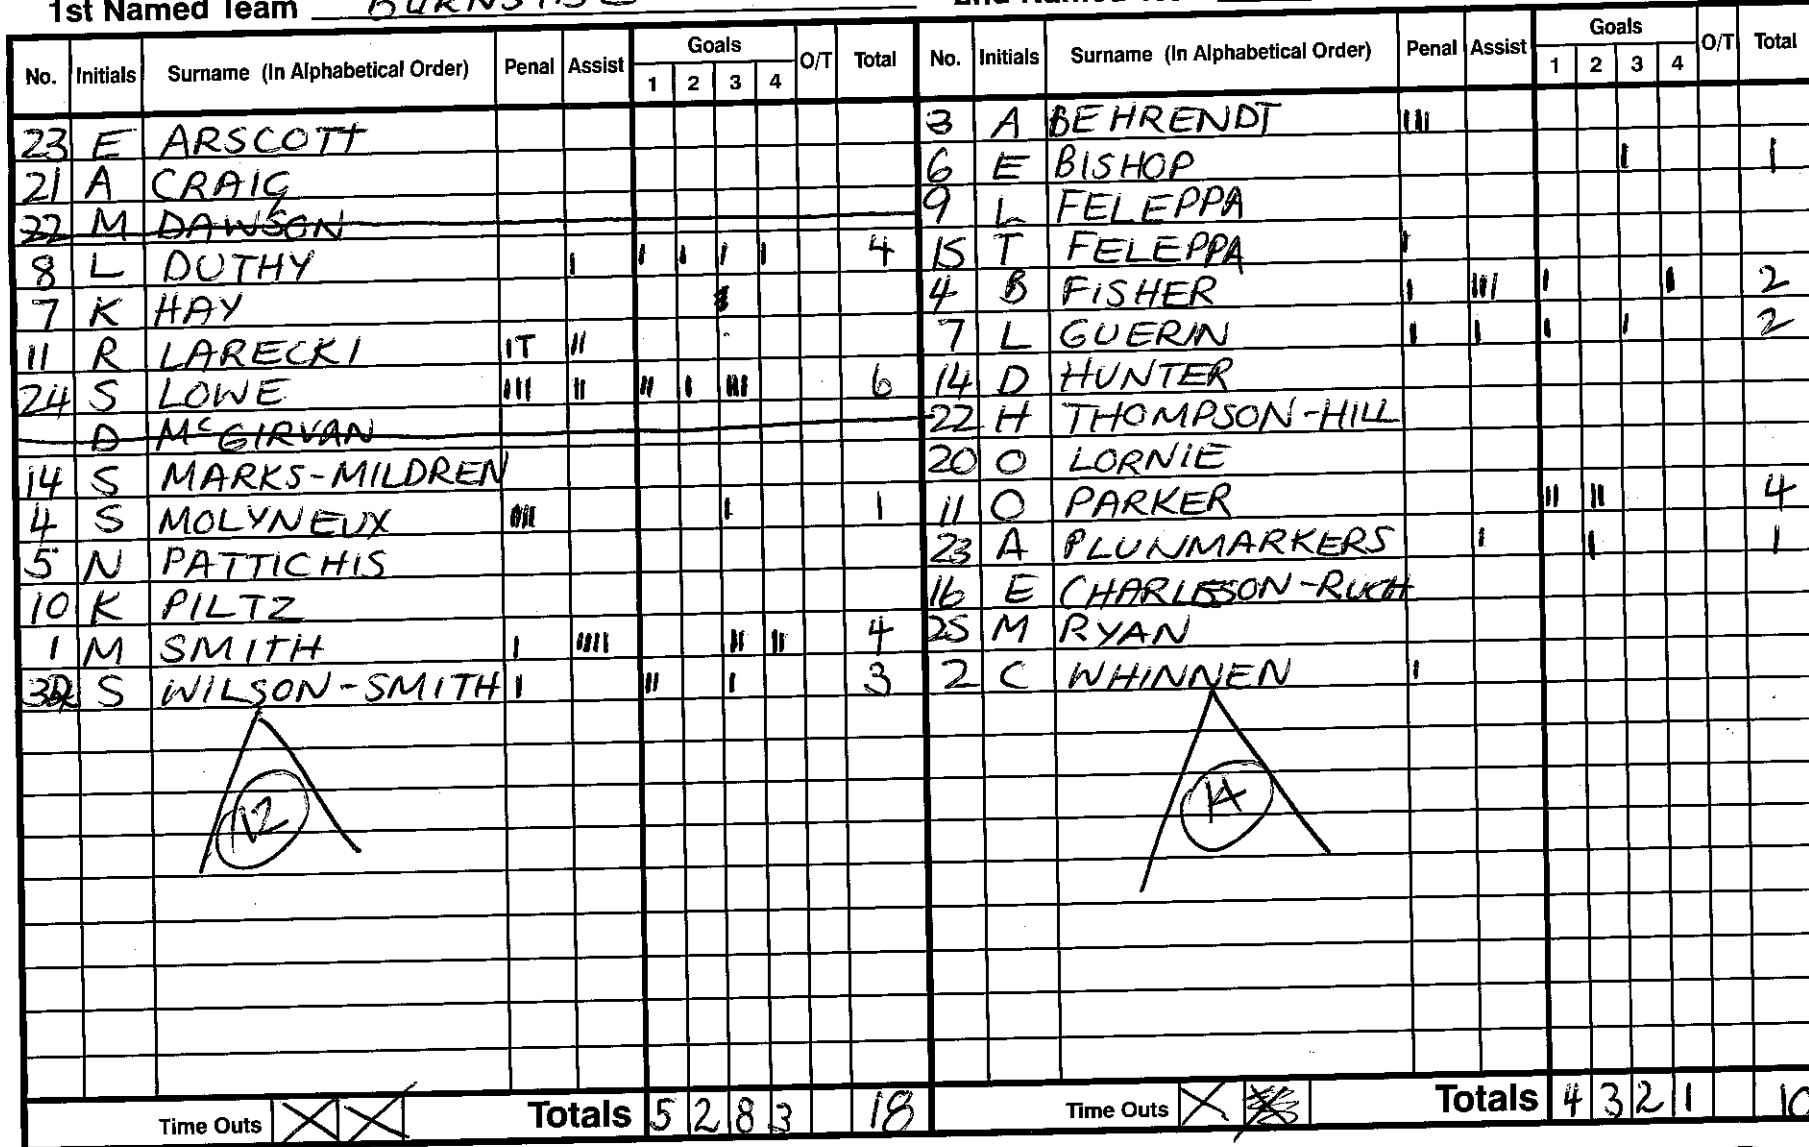 1st Named Team BURNSIDE
No. Initials Surname (In Alphabetical Order) Penal Assist Goals 1 2 3 4 O/T Total
23 E ARSCOTT
21 A CRAIG
22 M DAWSON
8 L DUTHY I I I I I 4
7 K HAY
11 R LARECKI IT II
24 S LOWE III II II I III 6
D McGIRVAN
14 S MARKS-MILDREN
4 S MOLYNEUX I 1
5 N PATTICHIS
10 K PILTZ
1 M SMITH I IIIII II II 4
S WILSON-SMITH I II I 3
12
Time Outs X X Totals 5 2 8 3 18
No. Initials Surname (In Alphabetical Order) Penal Assist Goals 1 2 3 4 O/T Total
3 A BEHRENDT III
6 E BISHOP I 1
9 L FELEPPA
15 T FELEPPA I
4 B FISHER I III I I 2
7 L GUERIN I I I I 2
14 D HUNTER
22 H THOMPSON-HILL
20 O LORNIE
11 O PARKER II II 4
23 A PLUNMARKERS I I 1
16 E CHARLESSON-RUCH
25 M RYAN
2 C WHINNEN I
14
Time Outs X Totals 4 3 2 1 10